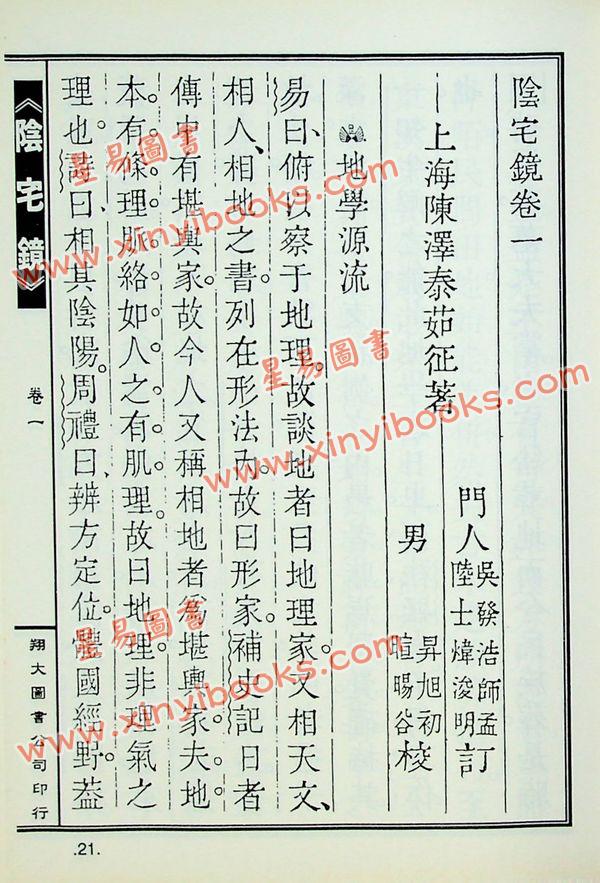 陰宅鏡卷一
上海陳澤泰茹征著
門人
吳發浩師孟
陸士煒浚明
訂
男
昇旭初
暄暘谷
校
地學源流
易曰、俯以察于地理。故談地者曰地理家。又相天文、
相人、相地之書。列在形法內。故曰形家。補史記日者
傳中有堪輿家。故今人又稱相地者爲堪輿家。夫地
本有條理脈絡。如人之有肌理。故曰地理。非理氣之
理也。詩曰相其陰陽。周禮曰、辨方定位。體國經野。葢
《陰宅鏡》
卷一
翔大圖書公司印行
.21.
星易圖書
www.xinyibooks.com
星易圖書
www.xinyibooks.com
星易圖書
www.xinyibooks.com